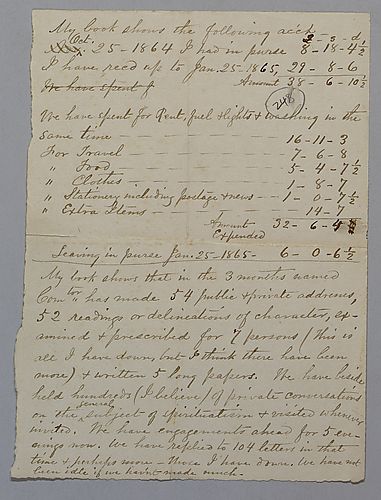 My book shows the following acc't
£ - s - d
Oct. 25 - 1864 I had in purse 8 - 18 - 4 1/2
I have rec'd up to Jan. 25 - 1865, 29 - 8 - 6
We have spent f Amount 38 - 6 - 10 1/2
248
We have spent for Rent, fuel & lights & washing in the
same time — 16 - 11 - 3
For Travel — 7 - 6 - 8
" Food — 5 - 4 - 7 1/2
" Clothes — 1 - 8 - 7
" Stationery including postage & news - 1 - 0 - 7 1/2
" Extra Items — 14 - 7
Amount 32 - 6 - 4
Expended
Leaving in purse Jan. 25 - 1865 - 6 - 0 - 6 1/2
My book shows that in the 3 months named
" has made 54 public & private addresses,
52 readings or delineations of character, ex-
amined & prescribed for 7 persons (this is
all I have down, but I think there have been
more) & written 5 long papers. We have beside
held hundreds (I believe) of private conversations
on the general subject of spiritualism & visited whenever
invited. We have engagements ahead for 5 eve-
nings now. We have replied to 104 letters in that
time & perhaps more - those I have down. We have not
been idle if we havn't made much.